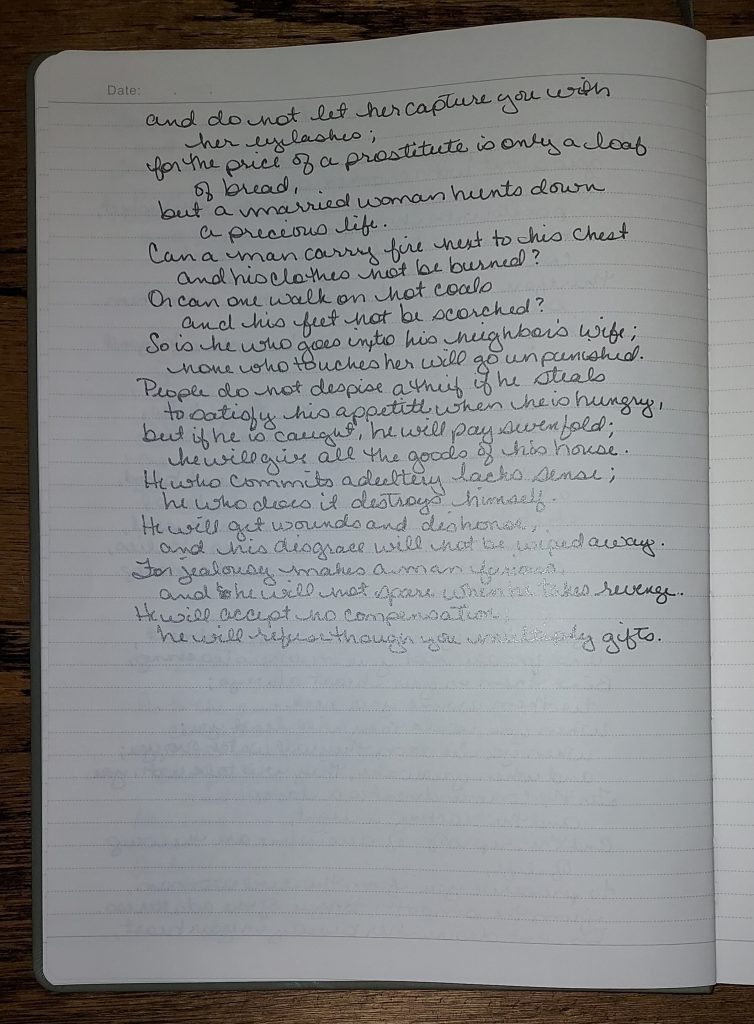 Date:
and do not let her capture you with
her eyelashes;
for the price of a prostitute is only a loaf
of bread,
but a married woman hunts down
a precious life.
Can a man carry fire next to his chest
and his clothes not be burned?
Or can one walk on hot coals
and his feet not be scorched?
So is he who goes into his neighbor's wife;
none who touches her will go unpunished.
People do not despise a thief if he steals
to satisfy his appetite when he is hungry,
but if he is caught, he will pay sevenfold;
he will give all the goods of his house.
He who commits adultery lacks sense;
he who does it destroys himself.
He will get wounds and dishonor,
and his disgrace will not be wiped away.
For jealousy makes a man furious,
and he will not spare when he takes revenge.
He will accept no compensation;
he will refuse though you multiply gifts.